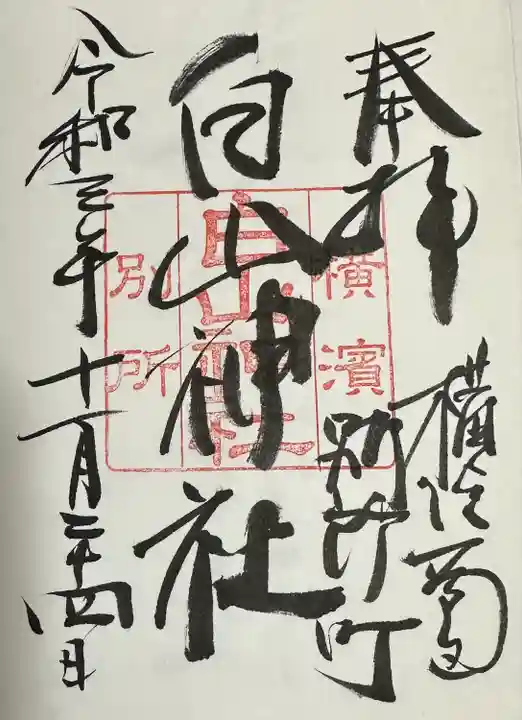 奉拝
横浜南区
別所町
白山神社
令和三年十一月二十四日
横濱
白山神社
別所